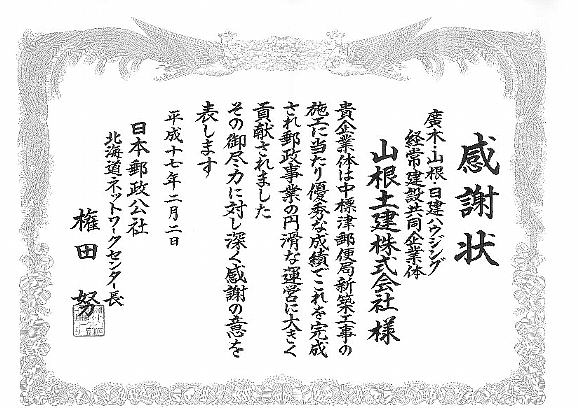 感謝状
廣木・山根・日建ハウジング
経常建設共同企業体
山根土建株式会社 様
貴企業体は中標津郵便局新築工事の
施工に当たり優秀な成績でこれを完成
され郵政事業の円滑な運営に大きく
貢献されました
その御尽力に対し深く感謝の意を
表します
平成十七年二月二日
日本郵政公社
北海道ネットワークセンター長
権田 努